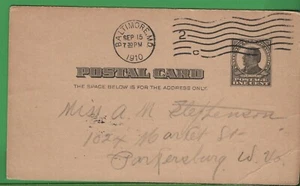 BALTIMORE, MD.
SEP 15
7 30 PM
1910
2
POSTAL CARD
THE SPACE BELOW IS FOR THE ADDRESS ONLY.
POSTAGE
ONE CENT
Miss A. M. Stephenson
1824 Market St
Parkersburg W. Va.